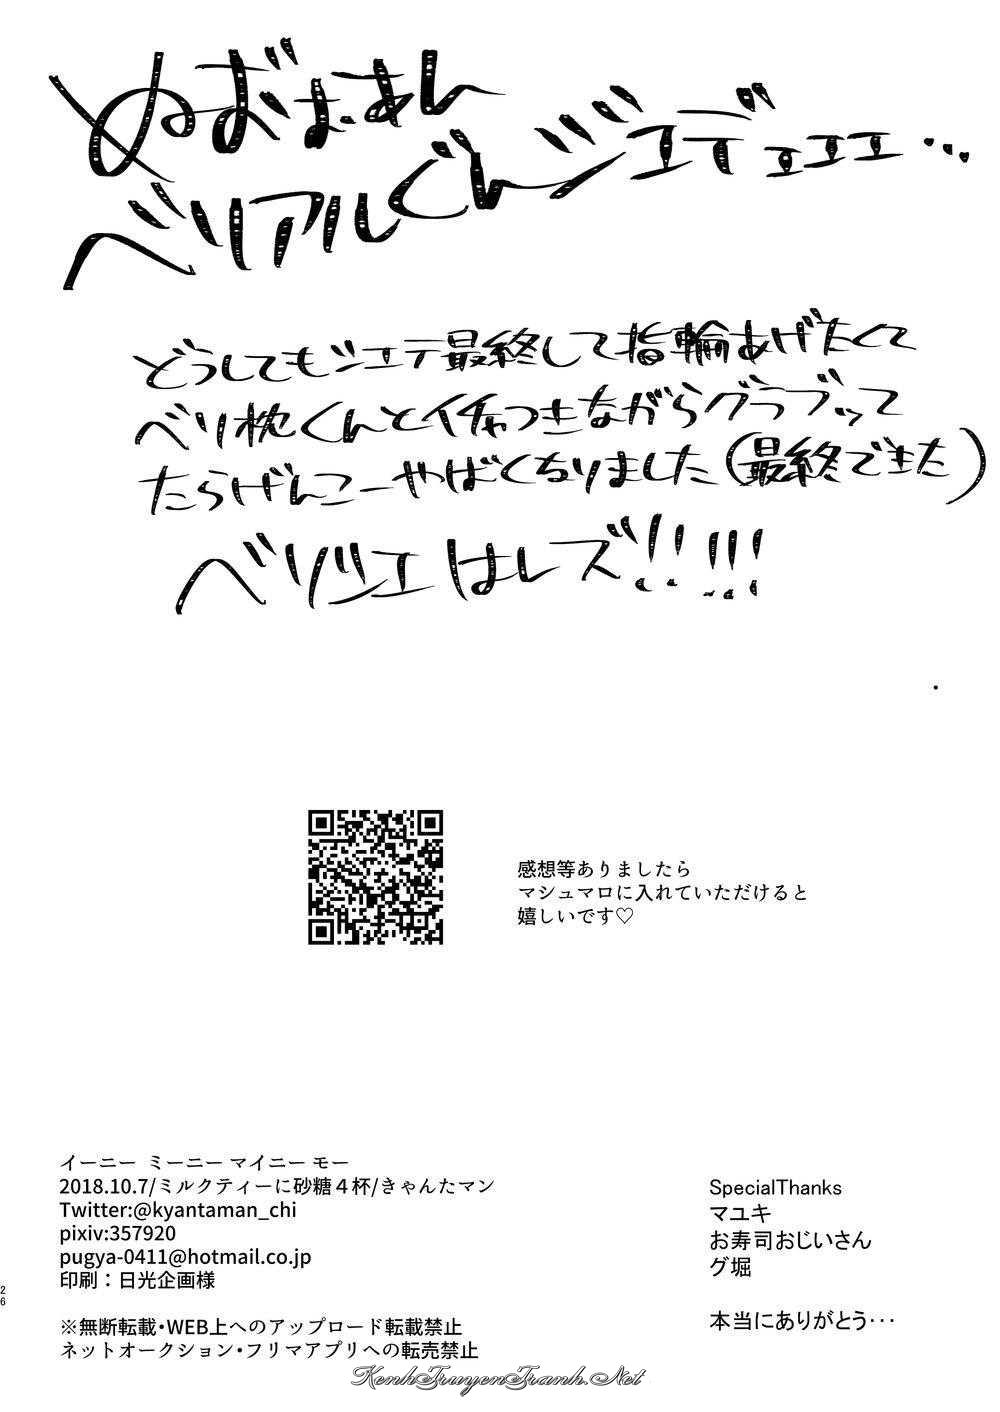 ぬおぉあん
ベリアルぐんジエデェェェ…
どうしてもジエテ最終して指輪あげたくて
ベリ枕くんとイチャつきながらグラブッて
たらげんこーやばくなりました(最終できた)
ベリジエはレズ!!!!!
感想等ありましたら
マシュマロに入れていただけると
嬉しいです♡
イーニー ミーニー マイニー モー
2018.10.7/ミルクティーに砂糖4杯/きゃんたマン
Twitter:@kyantaman_chi
pixiv:357920
pugya-0411@hotmail.co.jp
印刷：日光企画様
※無断転載・WEB上へのアップロード転載禁止
ネットオークション・フリマアプリへの転売禁止
SpecialThanks
マユキ
お寿司おじいさん
グ堀
本当にありがとう…
26
KenhTruyenTranh.Net